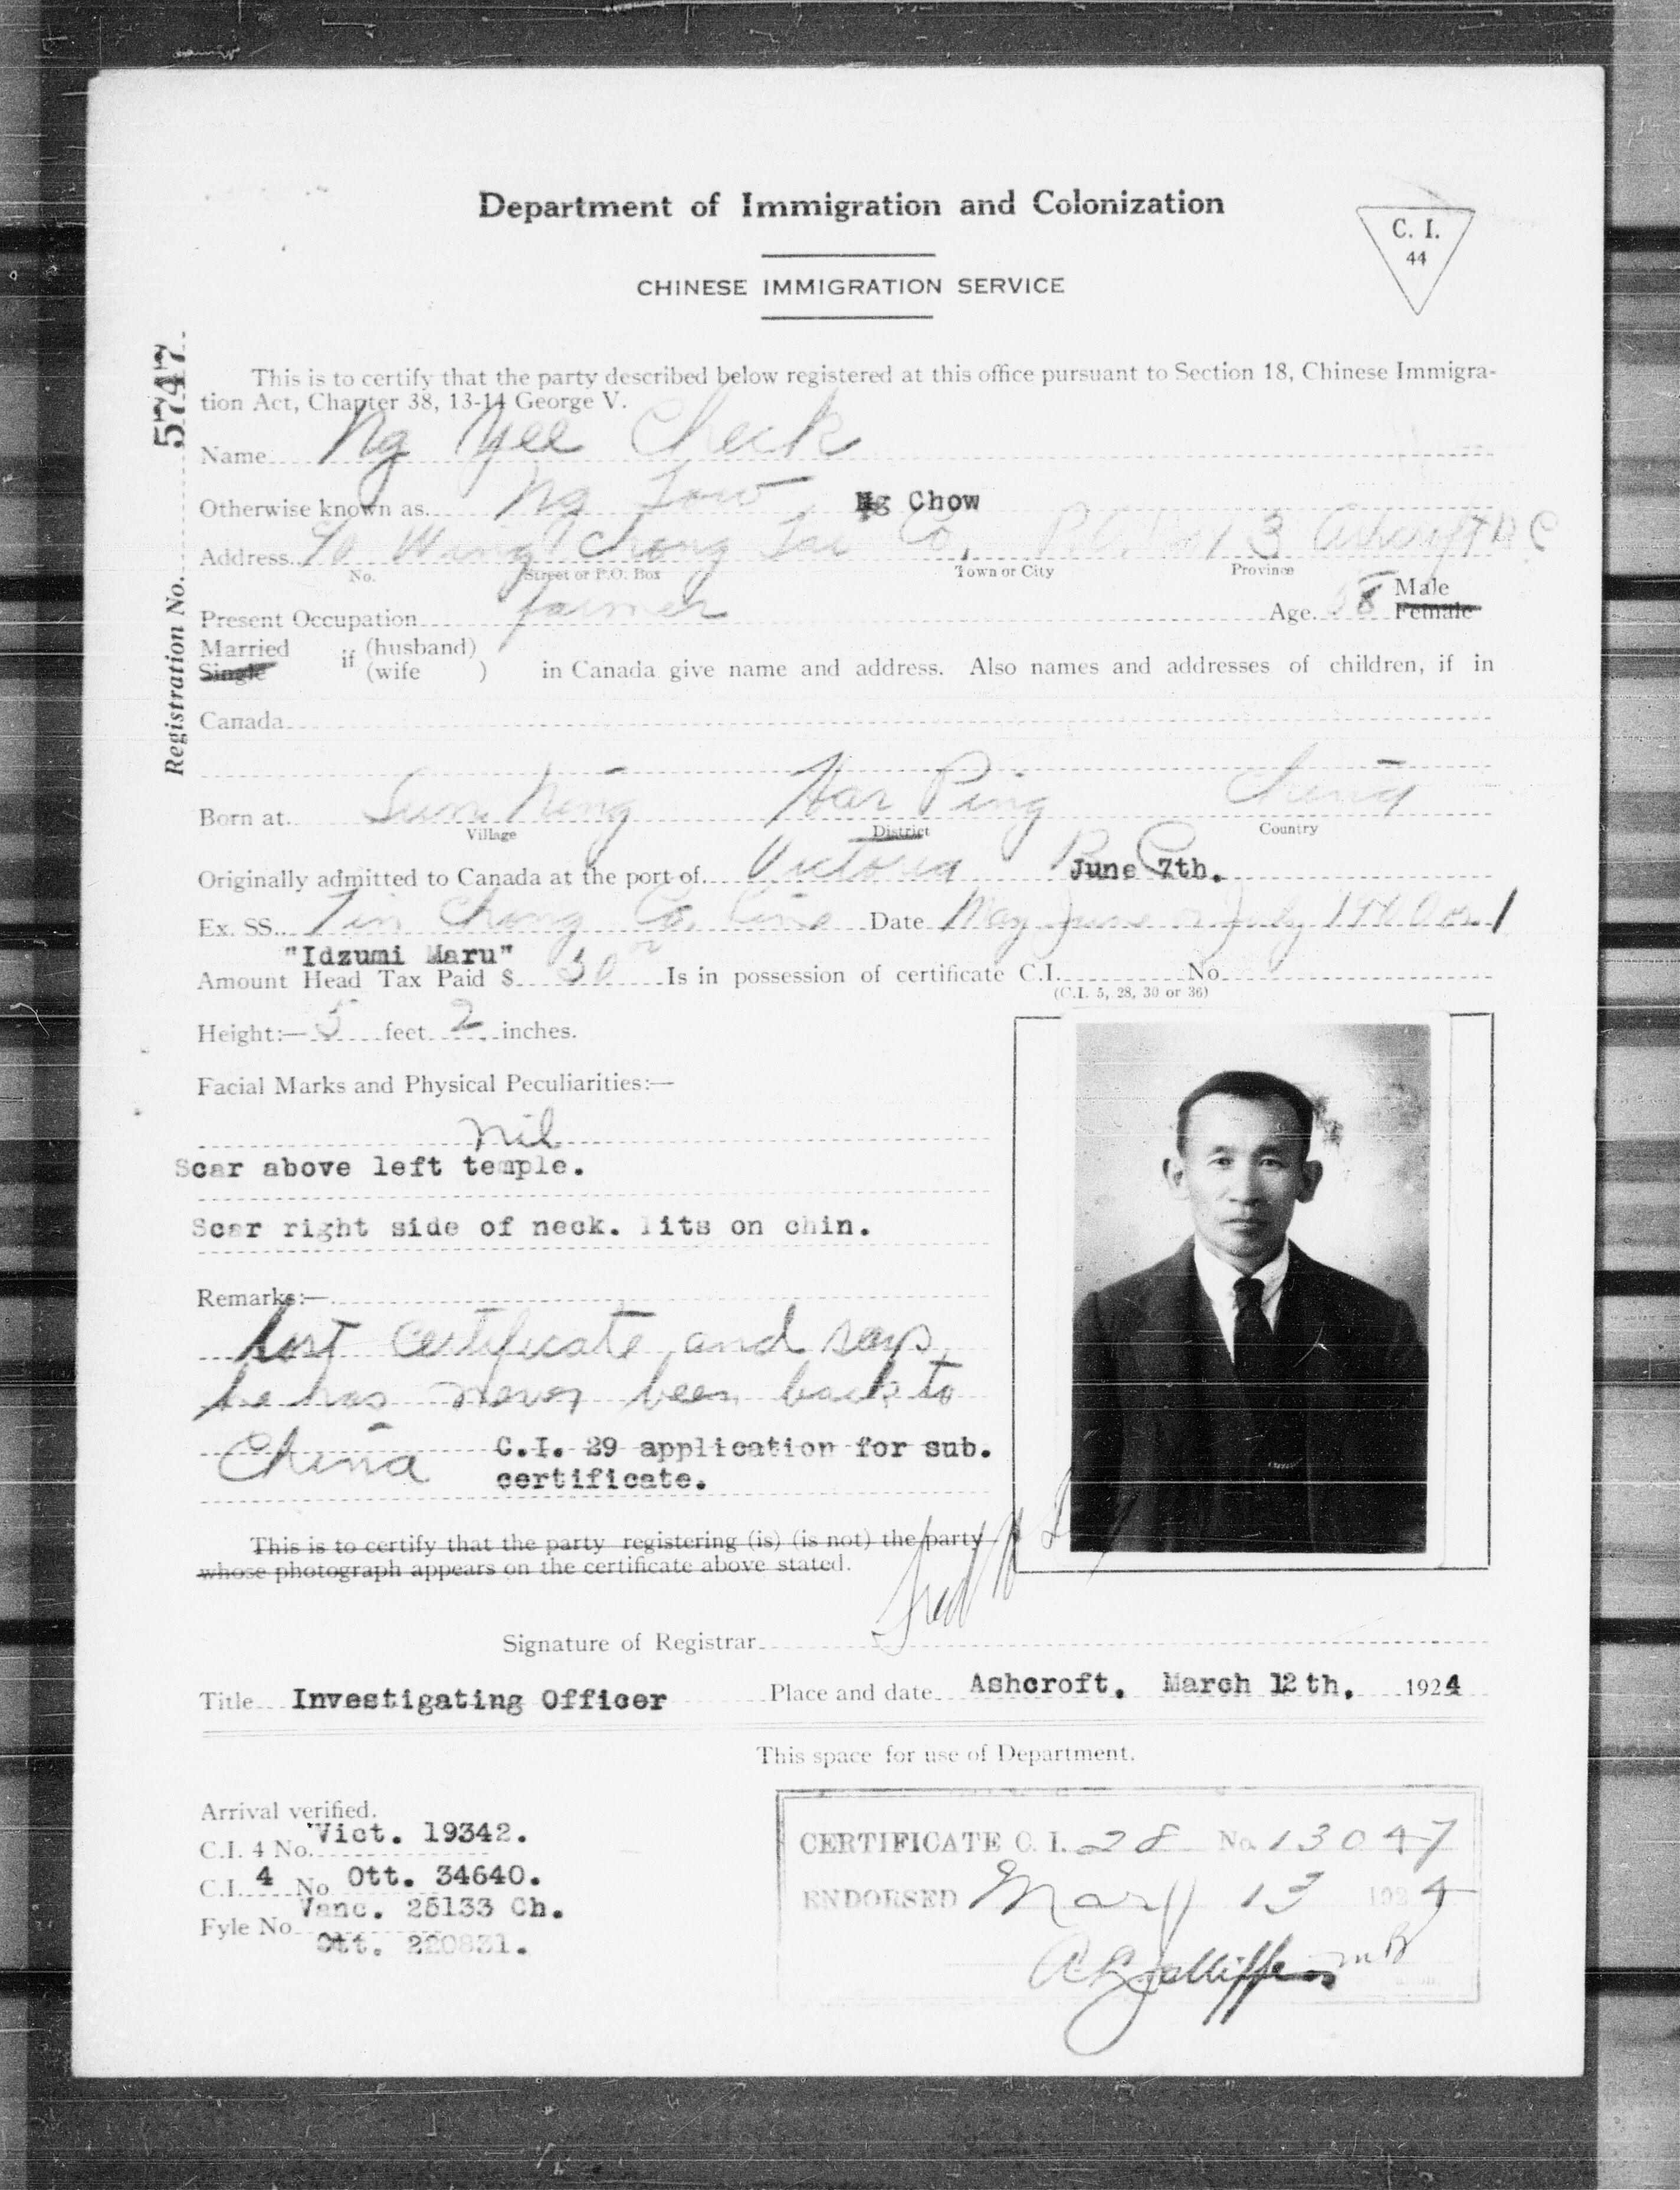 Department of Immigration and Colonization
C. I.
44
CHINESE IMMIGRATION SERVICE
Registration No. 5747
This is to certify that the party described below registered at this office pursuant to Section 18, Chinese Immigra-
tion Act, Chapter 38, 13-14 George V.
Name Ng Yee Check
Otherwise known as Ng Tow Ng Chow
Address c/o Wing Chong Tai Co, P.O. Box 3 Ashcroft B C
No. Street or P.O. Box Town or City Province
Present Occupation farmer Age 38 Male Female
Married Single if (husband) (wife ) in Canada give name and address. Also names and addresses of children, if in
Canada
Born at Sun Ning Har Ping China
Village District Country
Originally admitted to Canada at the port of Victoria B C June 7th.
Ex. SS. Tin Chong Co. Line Date May June or July 1900 or 1
"Idzumi Maru"
Amount Head Tax Paid $ 50 Is in possession of certificate C.I. No
(C.I. 5, 28, 30 or 36)
Height:— 5 feet 2 inches.
Facial Marks and Physical Peculiarities:—
nil
Scar above left temple.
Scar right side of neck. Pits on chin.
Remarks:—
Lost Certificate and says
he has never been back to
China C.I. 29 application for sub.
certificate.
This is to certify that the party registering (is) (is not) the party
whose photograph appears on the certificate above stated.
Signature of Registrar Fred W
Title Investigating Officer Place and date Ashcroft. March 12th. 1924
This space for use of Department.
Arrival verified.
C.I. 4 No. Vict. 19342.
C.I. 4 No. Ott. 34640.
Fyle No. Vanc. 25133 Ch.
Ott. 220831.
CERTIFICATE C. I. 28 No. 13047
ENDORSED Mar 13 1924
A L Jolliffe